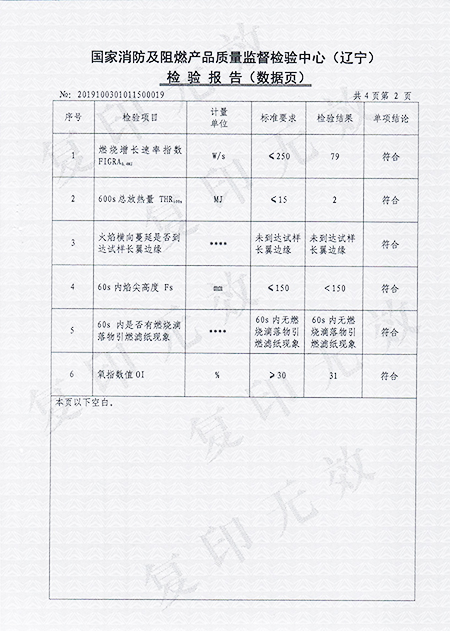 国家消防及阻燃产品质量监督检验中心（辽宁）
检 验 报 告（数据页）
№: 2019100301011500019 共 4 页第 2 页
序号 检验项目 计量单位 标准要求 检验结果 单项结论
1 燃烧增长速率指数 FIGRA W/s ≤250 79 符合
2 600s总放热量 THR MJ ≤15 2 符合
3 火焰横向蔓延是否到达试样长翼边缘 **** 未到达试样长翼边缘 未到达试样长翼边缘 符合
4 60s内焰尖高度 Fs mm ≤150 <150 符合
5 60s 内是否有燃烧滴落物引燃滤纸现象 **** 60s内无燃烧滴落物引燃滤纸现象 60s内无燃烧滴落物引燃滤纸现象 符合
6 氧指数值OI % ≥30 31 符合
本页以下空白。
复印无效
复印无效
复印无效
复印无效
复印无效